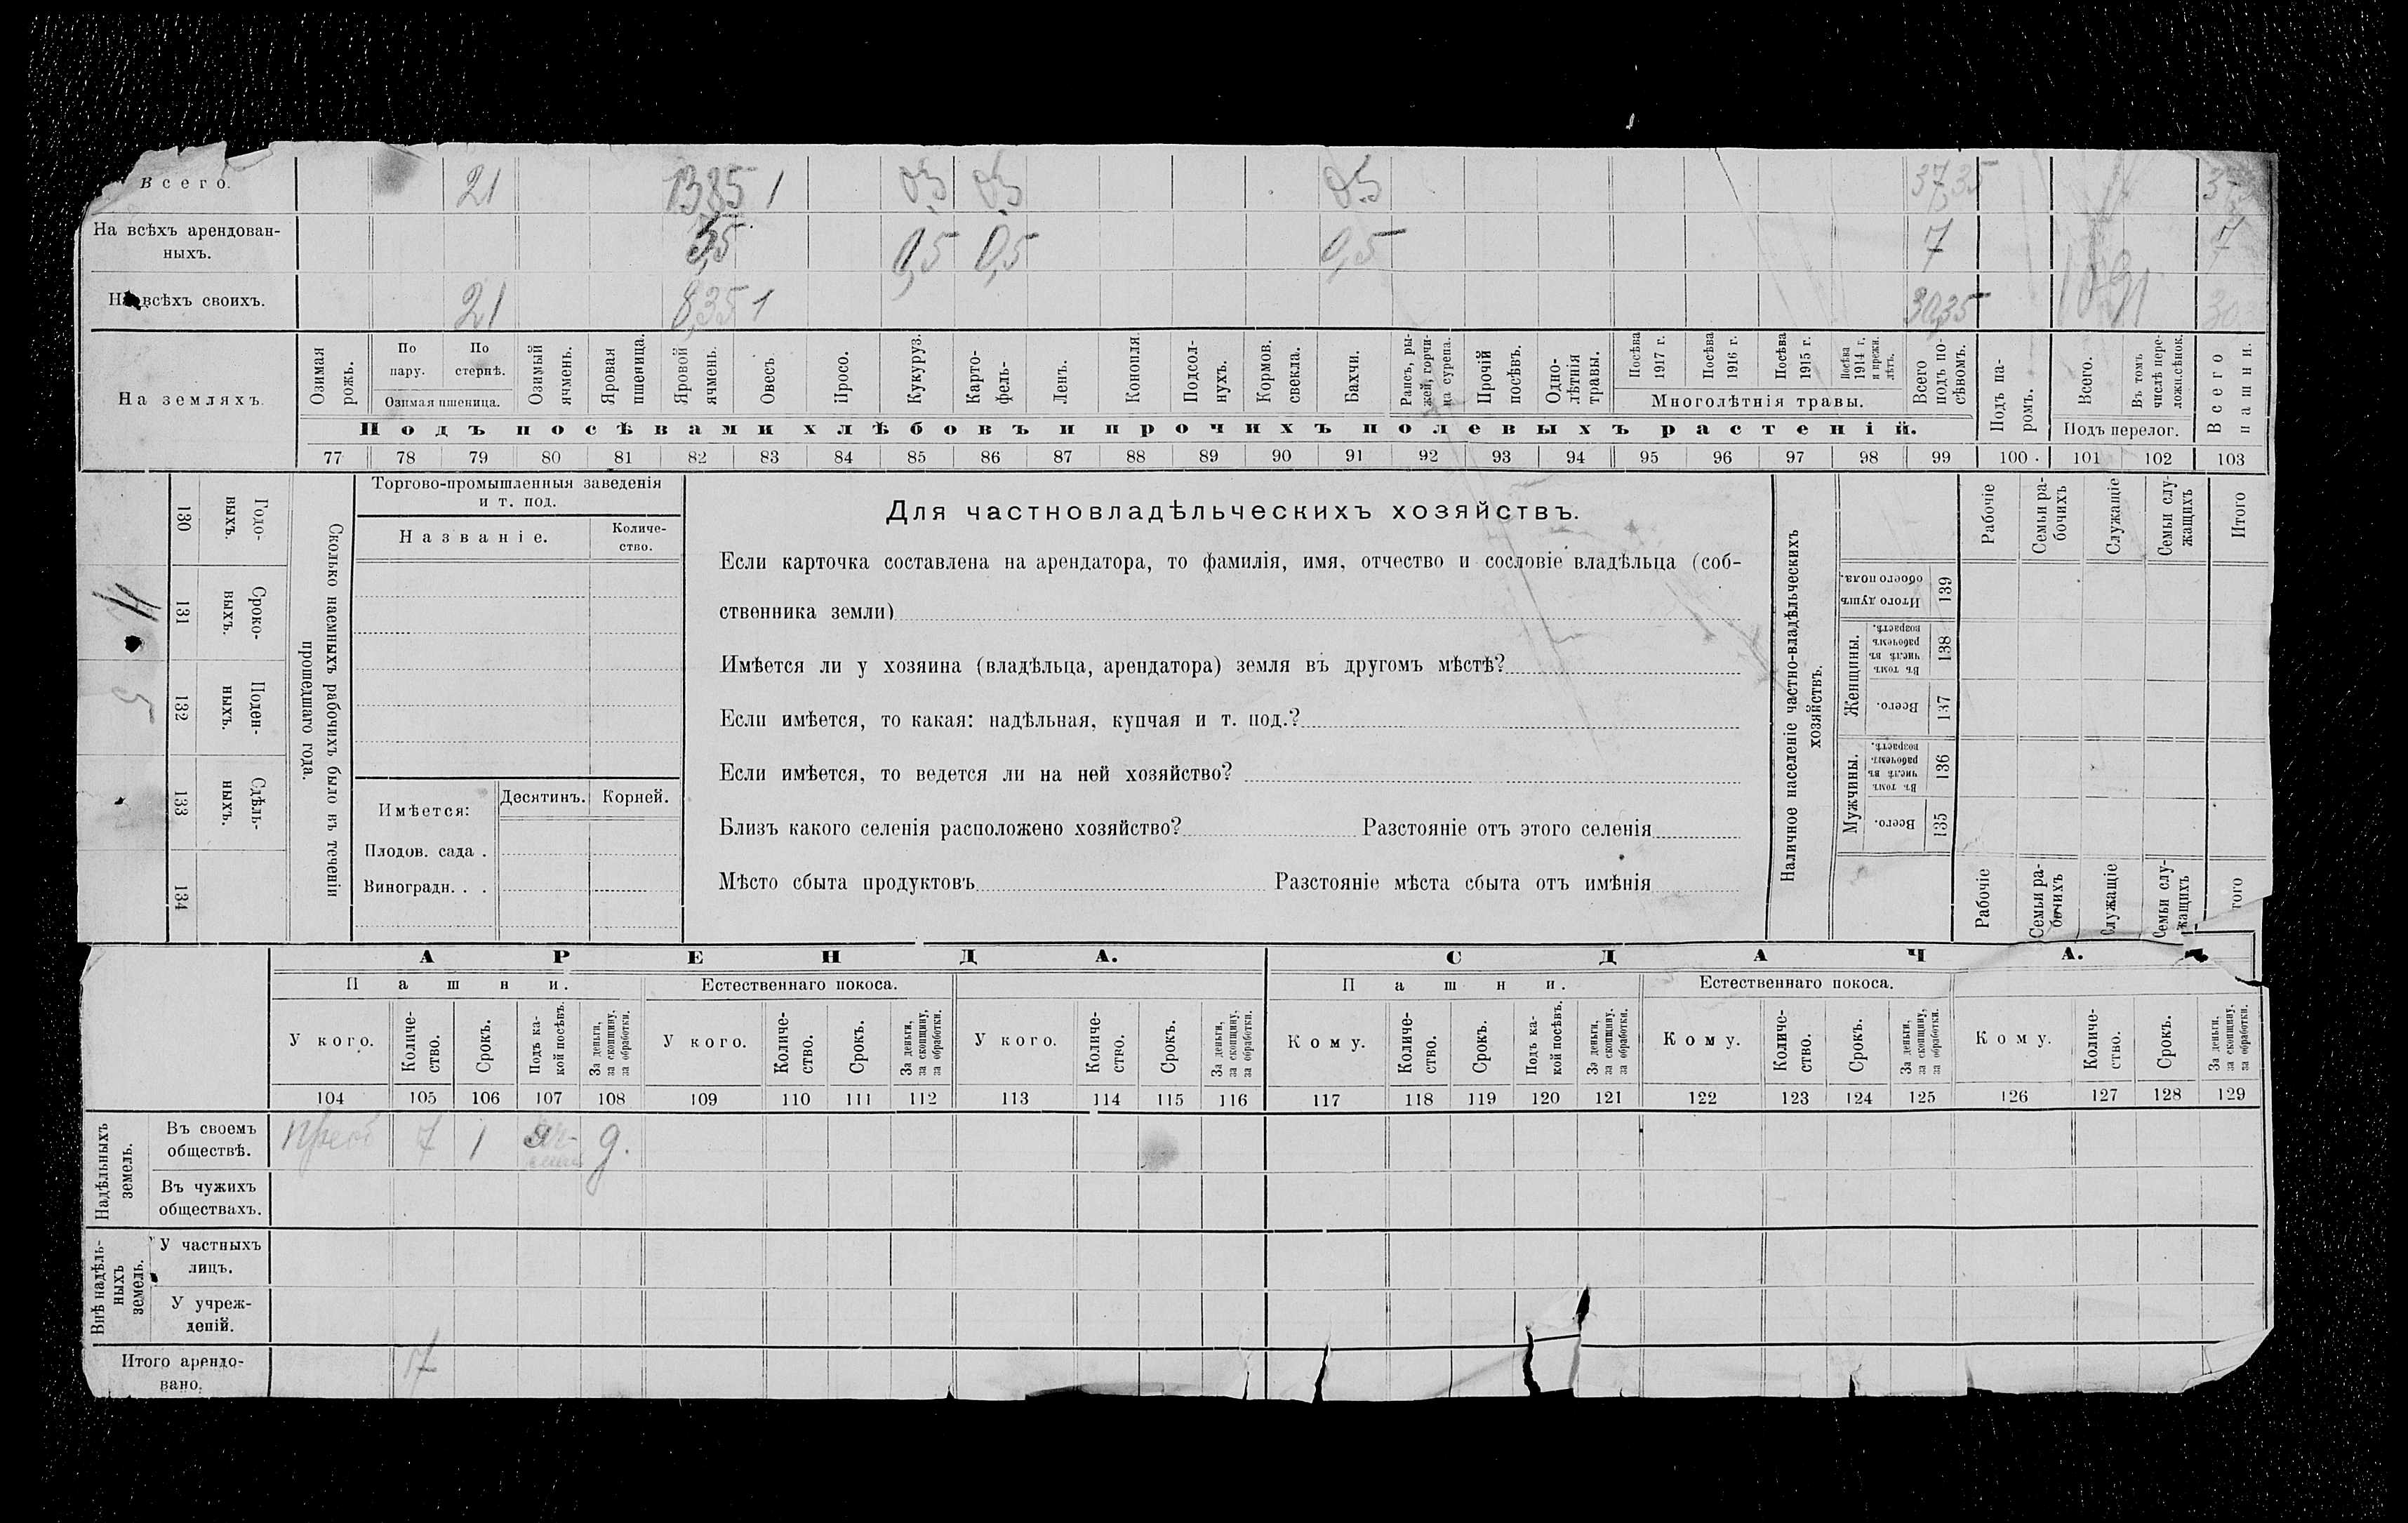 Всего. 21 13,85 1 0,5 0,5 0,5 37,35
На всѣхъ арендован-
ныхъ. 5,5 0,5 0,5 0,5 7 7
На всѣхъ своихъ. 21 8,35 1 30,35
На земляхъ.
Озимая рожь.
По пару.
По стернѣ.
Озимая пшеница.
Озимый ячмень.
Яровая пшеница.
Яровой ячмень.
Овесъ
Просо.
Кукуруз.
Карто-
фель-
Ленъ.
Конопля
Подсол-
нухъ.
Кормов.
свекла.
Бахчи.
Рапсъ, ры-
жей, горчи-
ца сурепа.
Прочій
посѣвъ.
Одно-
лѣтнія
травы.
Посѣва
1917 г.
Посѣва
1916 г.
Посѣва
1915 г.
Посѣва
1914 г.
и прежн.
лѣтъ.
Многолѣтнія травы.
Всего
подъ по-
сѣвомъ.
Подъ посѣвами хлѣбовъ и прочихъ полевыхъ растеній.
Подъ па-
ромъ.
Всего.
Въ томъ
числѣ пере-
ложн.сѣнок.
Подъ перелог.
Всего
пашни.
77 78 79 80 81 82 83 84 85 86 87 88 89 90 91 92 93 94 95 96 97 98 99 100 101 102 103
130
Годо-
выхъ.
131
Сроко-
выхъ.
132
Поден-
ныхъ.
133
Сдѣль-
ныхъ.
134
Сколько наемныхъ рабочихъ было въ теченіи
прошедшаго года.
Торгово-промышленныя заведенія
и т. под.
Названіе.
Количе-
ство.
Имѣется:
Десятинъ. Корней.
Плодов. сада .
Виноградн. . .
Для частновладѣльческихъ хозяйствъ.
Если карточка составлена на арендатора, то фамилія, имя, отчество и сословіе владѣльца (соб-
ственника земли)
Имѣется ли у хозяина (владѣльца, арендатора) земля въ другомъ мѣстѣ?
Если имѣется, то какая: надѣльная, купчая и т. под.?
Если имѣется, то ведется ли на ней хозяйство?
Близъ какого селенія расположено хозяйство? Разстояніе отъ этого селенія
Мѣсто сбыта продуктовъ Разстояніе мѣста сбыта отъ имѣнія
Наличное населеніе частно-владѣльческихъ
хозяйствъ.
Рабочіе
Семьи ра-
бочихъ
Служащіе
Семьи слу-
жащихъ
Итого
Итого душъ
обоего пола.
139
Женщины.
Въ томъ
числѣ въ
рабочемъ
возрастѣ.
138
Всего.
137
Мужчины.
Въ томъ
числѣ въ
рабочемъ
возрастѣ.
136
Всего.
135
Рабочіе
Семьи ра-
бочихъ
Служащіе
Семьи слу-
жащихъ
того
АРЕНДА.
СДАЧА.
Пашни.
Естественнаго покоса.
Пашни.
Естественнаго покоса.
У кого.
Количе-
ство.
Срокъ.
Подъ ка-
кой посѣвъ.
За деньги,
за скопщину,
за обработки.
У кого.
Количе-
ство.
Срокъ.
За деньги,
за скопщину,
за обработки.
У кого.
Количе-
ство.
Срокъ.
За деньги,
за скопщину,
за обработки.
Кому.
Количе-
ство.
Срокъ.
Подъ ка-
кой посѣвъ.
За деньги,
за скопщину,
за обработки.
Кому.
Количе-
ство.
Срокъ.
За деньги,
за скопщину,
за обработки.
Кому.
Количе-
ство.
Срокъ.
За деньги,
за скопщину,
за обработки.
104 105 106 107 108 109 110 111 112 113 114 115 116 117 118 119 120 121 122 123 124 125 126 127 128 129
Надѣльныхъ
земель.
Въ своемъ
обществѣ. 7 1 д.
Въ чужихъ
обществахъ.
Внѣ надѣль-
ныхъ
земель.
У частныхъ
лицъ.
У учреж-
деній.
Итого арендо-
вано. 7